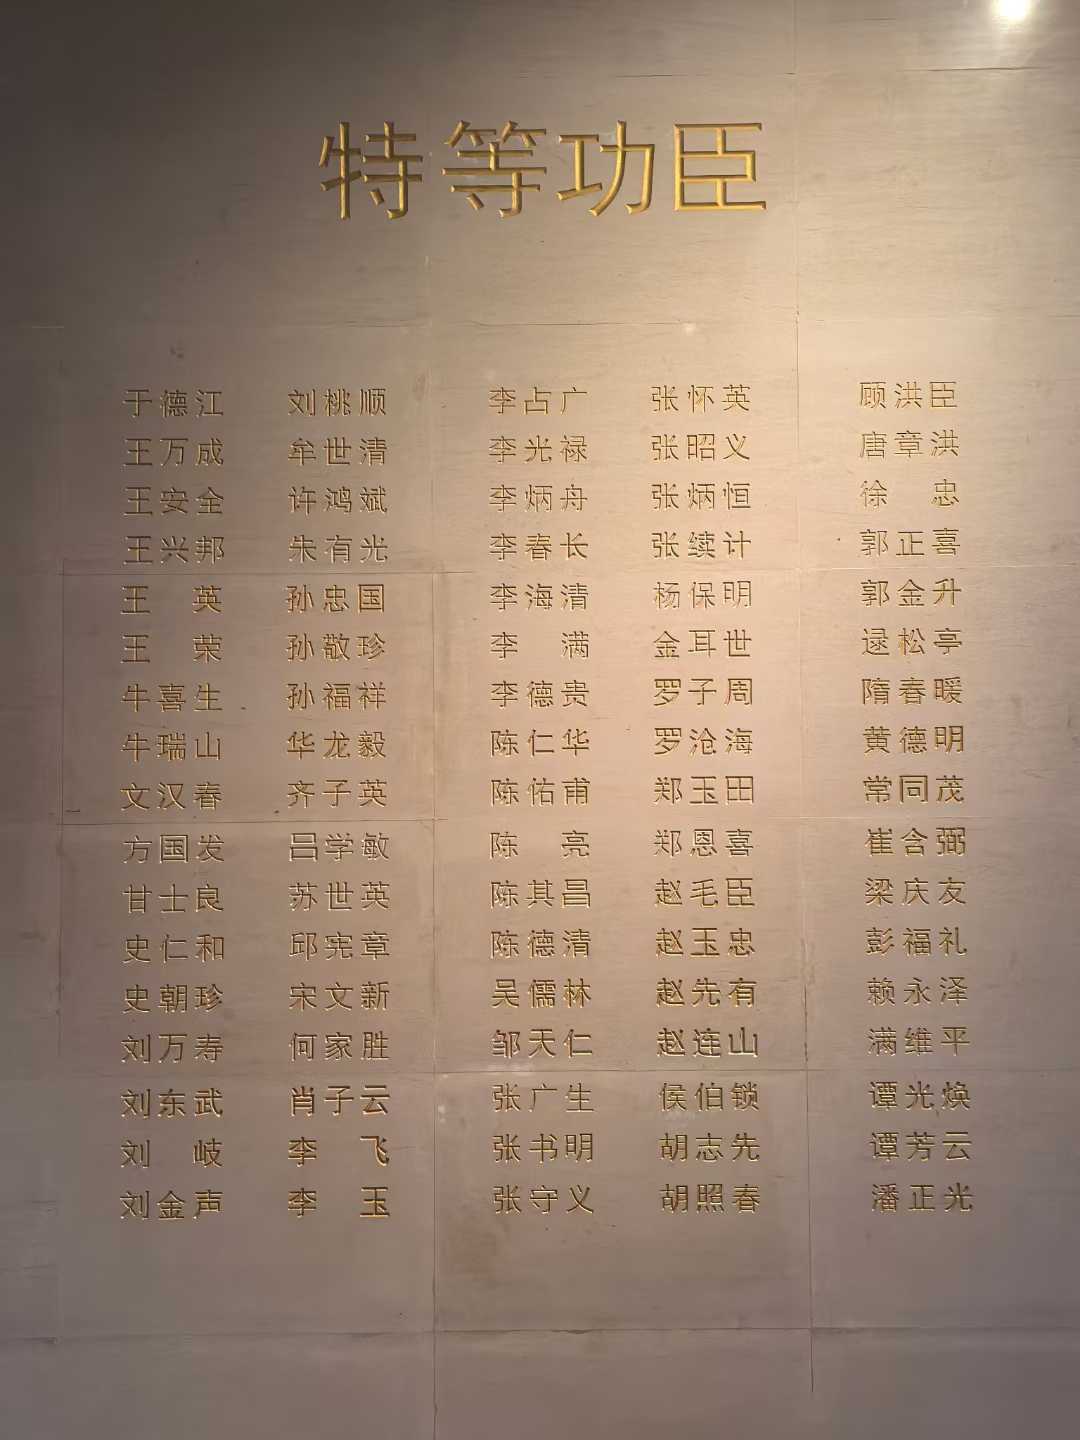 特等功臣
于德江 刘桃顺 李占广 张怀英 顾洪臣
王万成 牟世清 李光禄 张昭义 唐章洪
王安全 许鸿斌 李炳舟 张炳恒 徐忠
王兴邦 朱有光 李春长 张续计 郭正喜
王英 孙忠国 李海清 杨保明 郭金升
王荣 孙敬珍 李满 金耳世 逯松亭
牛喜生 孙福祥 李德贵 罗子周 隋春暖
牛瑞山 华龙毅 陈仁华 罗沧海 黄德明
文汉春 齐子英 陈佑甫 郑玉田 常同茂
方国发 吕学敏 陈亮 郑恩喜 崔含弼
甘士良 苏世英 陈其昌 赵毛臣 梁庆友
史仁和 邱宪章 陈德清 赵玉忠 彭福礼
史朝珍 宋文新 吴儒林 赵先有 赖永泽
刘万寿 何家胜 邹天仁 赵连山 满维平
刘东武 肖子云 张广生 侯伯锁 谭光焕
刘岐 李飞 张书明 胡志先 谭芳云
刘金声 李玉 张守义 胡照春 潘正光